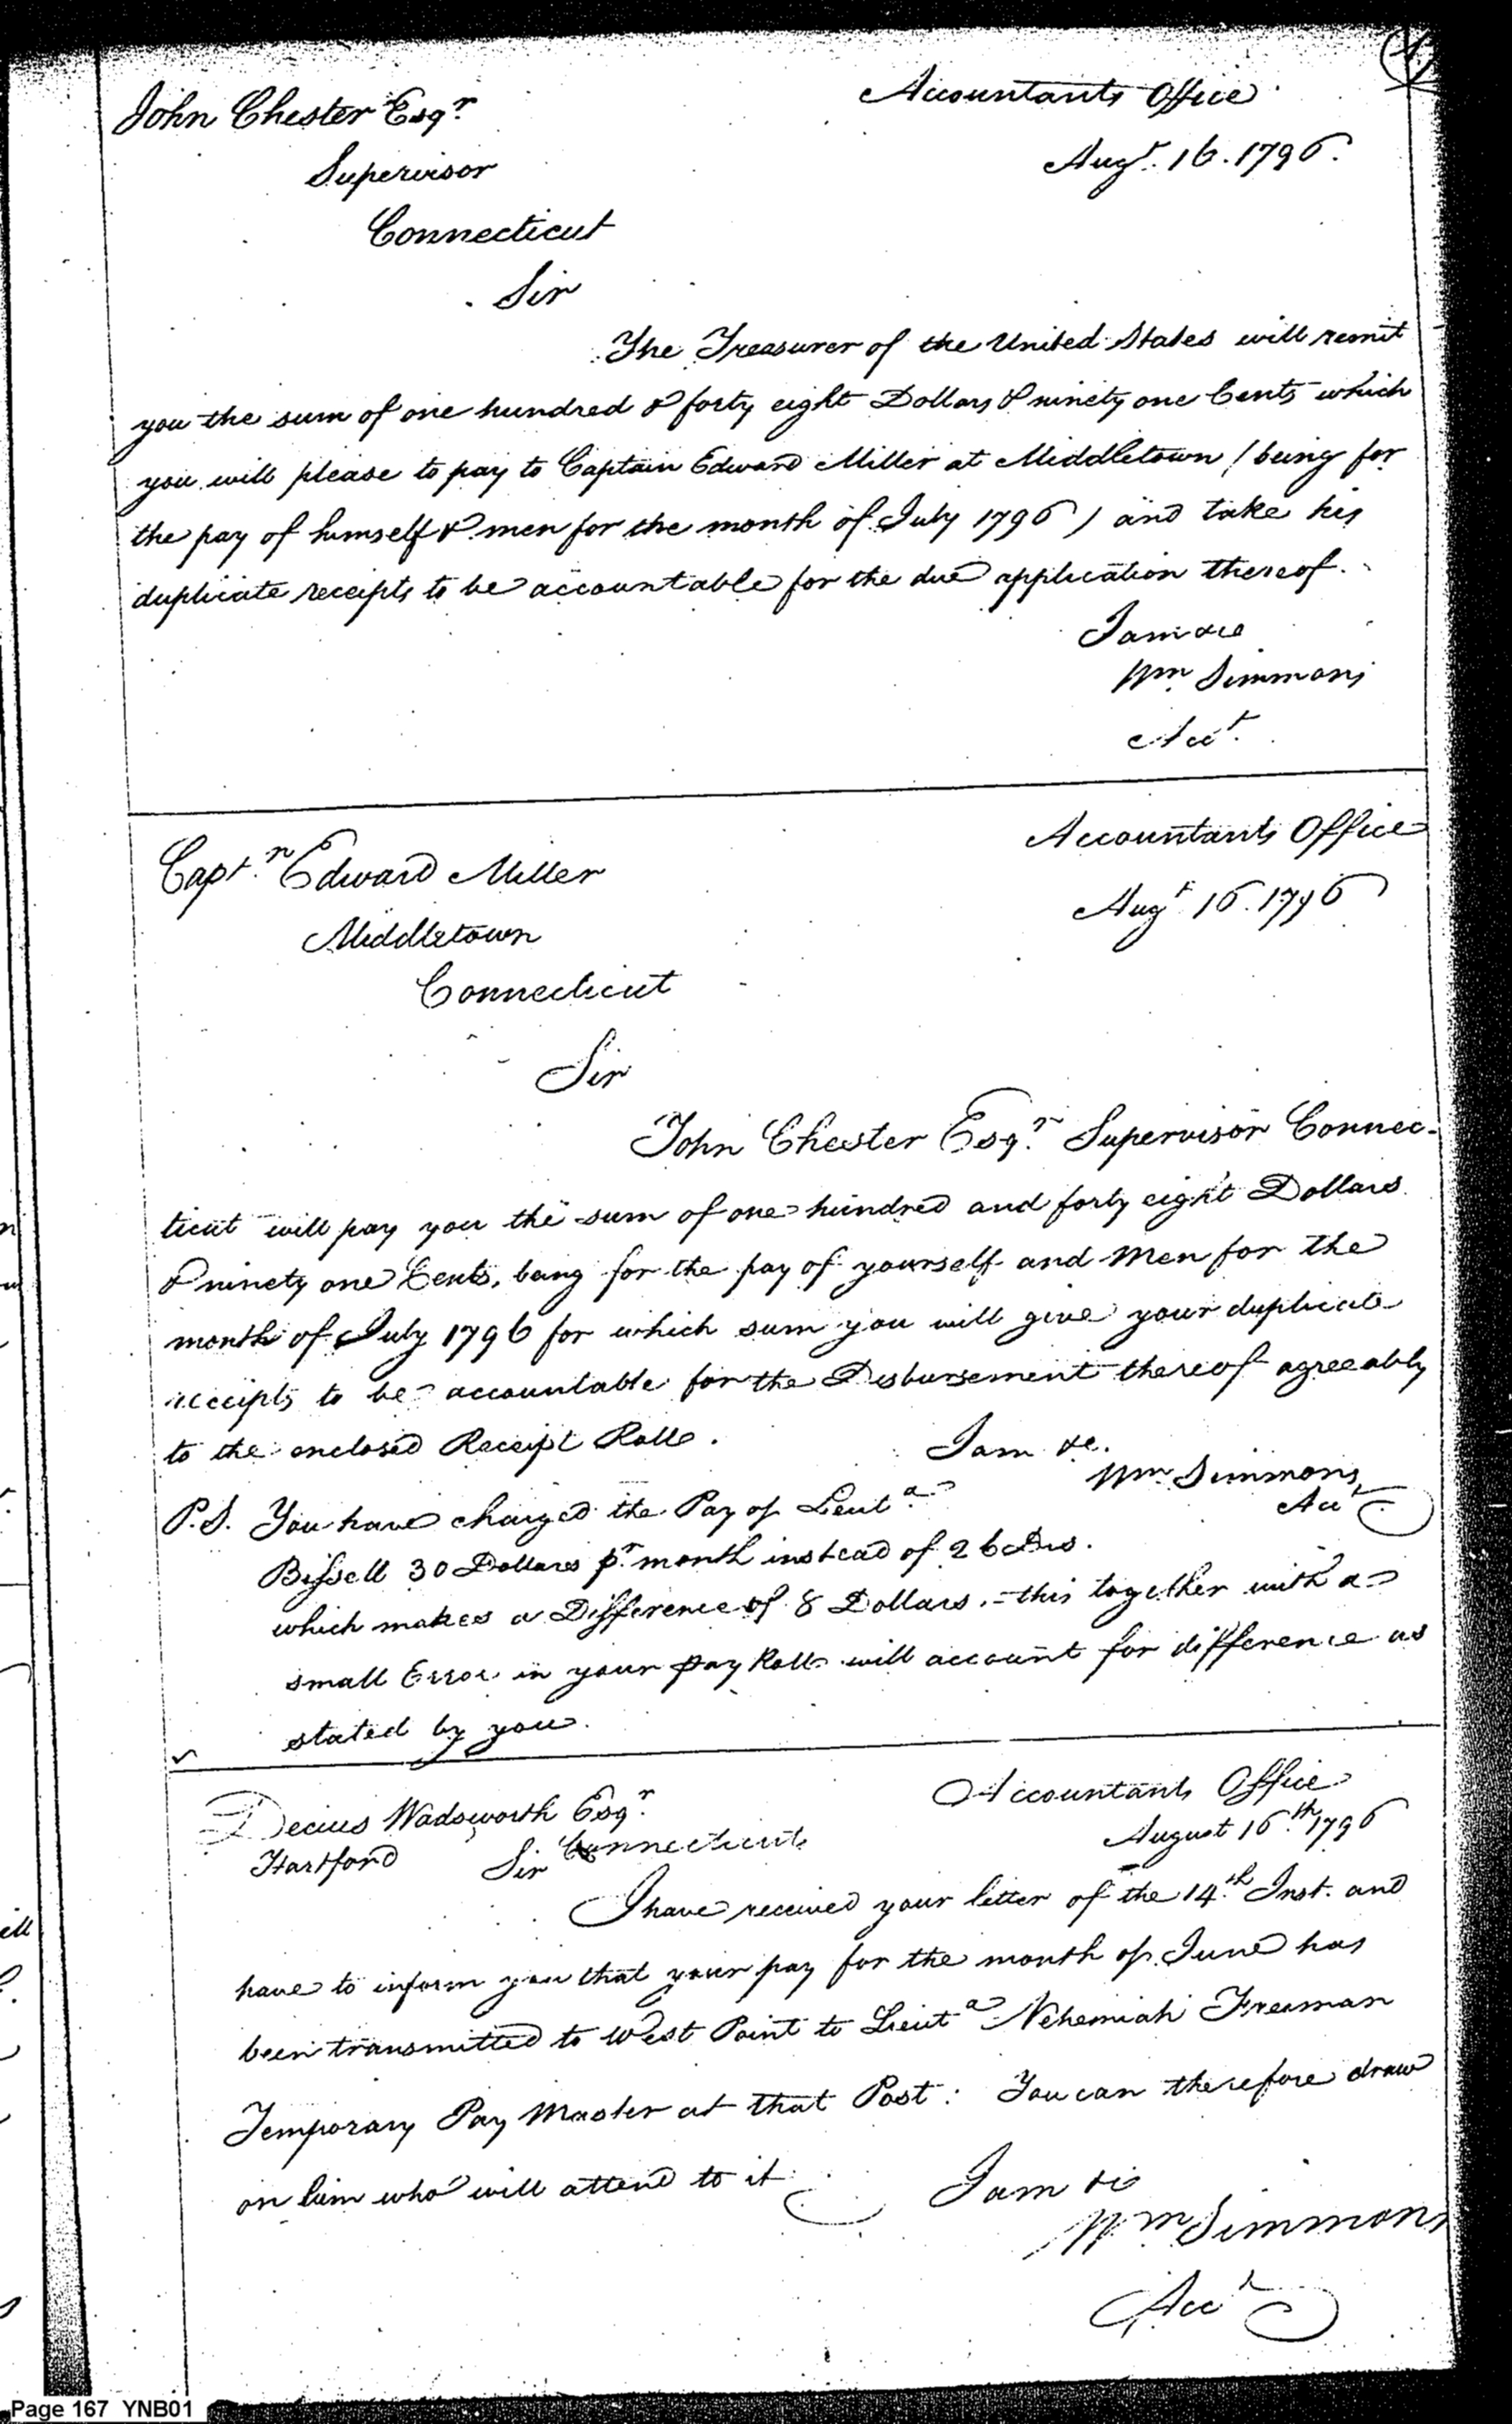 John Chester Esqr.
Accountants Office
Supervisor
Augt. 16. 1796.
Connecticut
Sir
The Treasurer of the United States will remit
you the sum of one hundred & forty eight Dollars & ninety one Cents which
you will please to pay to Captain Edward Miller at Middletown (being for
the pay of himself & men for the month of July 1796) and take his
duplicate receipts to be accountable for the due application thereof.
I am &c
Wm Simmons
Acct.
Captn. Edward Miller
Accountants Office
Middletown
Augt 16. 1796
Connecticut
Sir
John Chester Esqr. Supervisor Connec-
ticut will pay you the sum of one hundred and forty eight Dollars
& ninety one Cents, being for the pay of yourself and Men for the
month of July 1796 for which sum you will give your duplicate
receipts to be accountable for the Disbursement thereof agreeably
to the enclosed Receipt Rolls.
I am &c.
Wm Simmons
Acct
P.S. You have charged the Pay of Lieut
Bissell 30 Dollars pr month instead of 26 Drs.
which makes a Difference of 8 Dollars.- this together with a
small Error in your Pay Rolls will account for difference as
stated by you.
Decius Wadsworth Esqr.
Accountants Office
Hartford Connecticut
August 16th 1796
Sir
I have received your letter of the 14th. Inst. and
have to inform you that your pay for the month of June has
been transmitted to West Point to Lieut Nehemiah Freeman
Temporary Pay Master at that Post: You can therefore draw
on him who will attend to it
I am &c
Wm Simmons
Acct
Page 167 YNB01